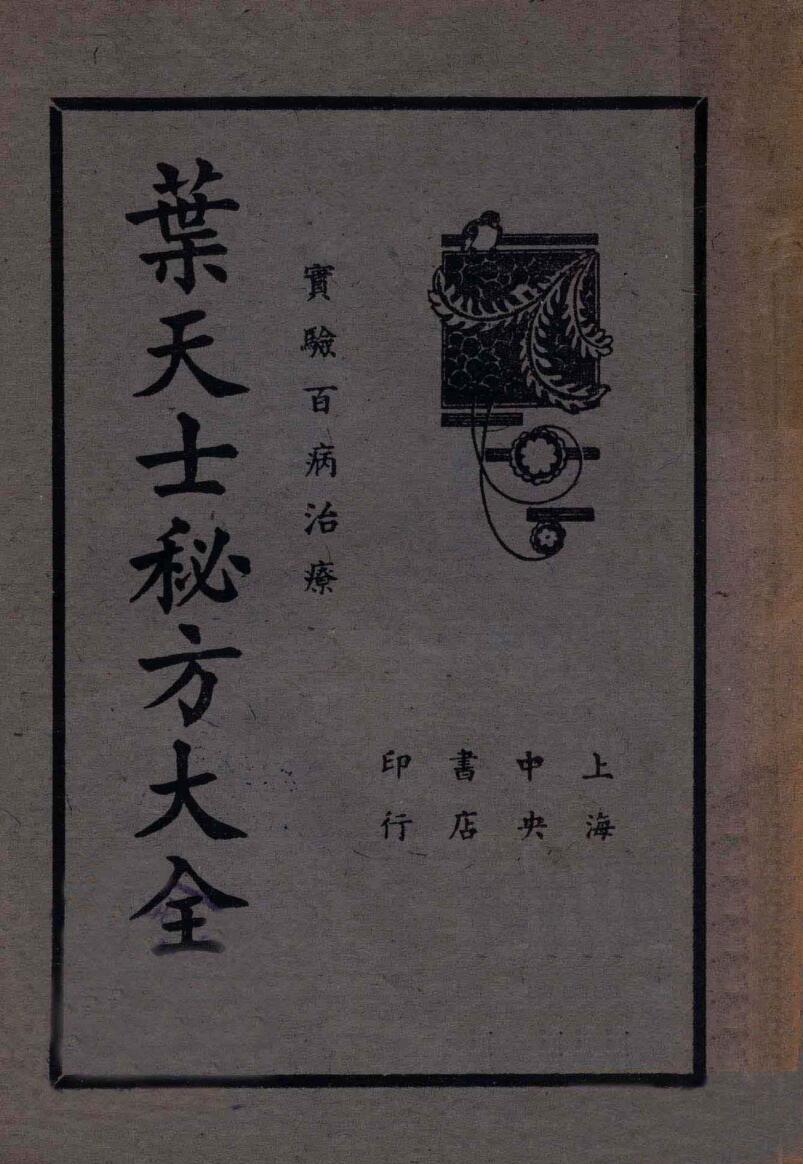 上海
中央
書店
印行
實驗百病治療
葉天士秘方大全